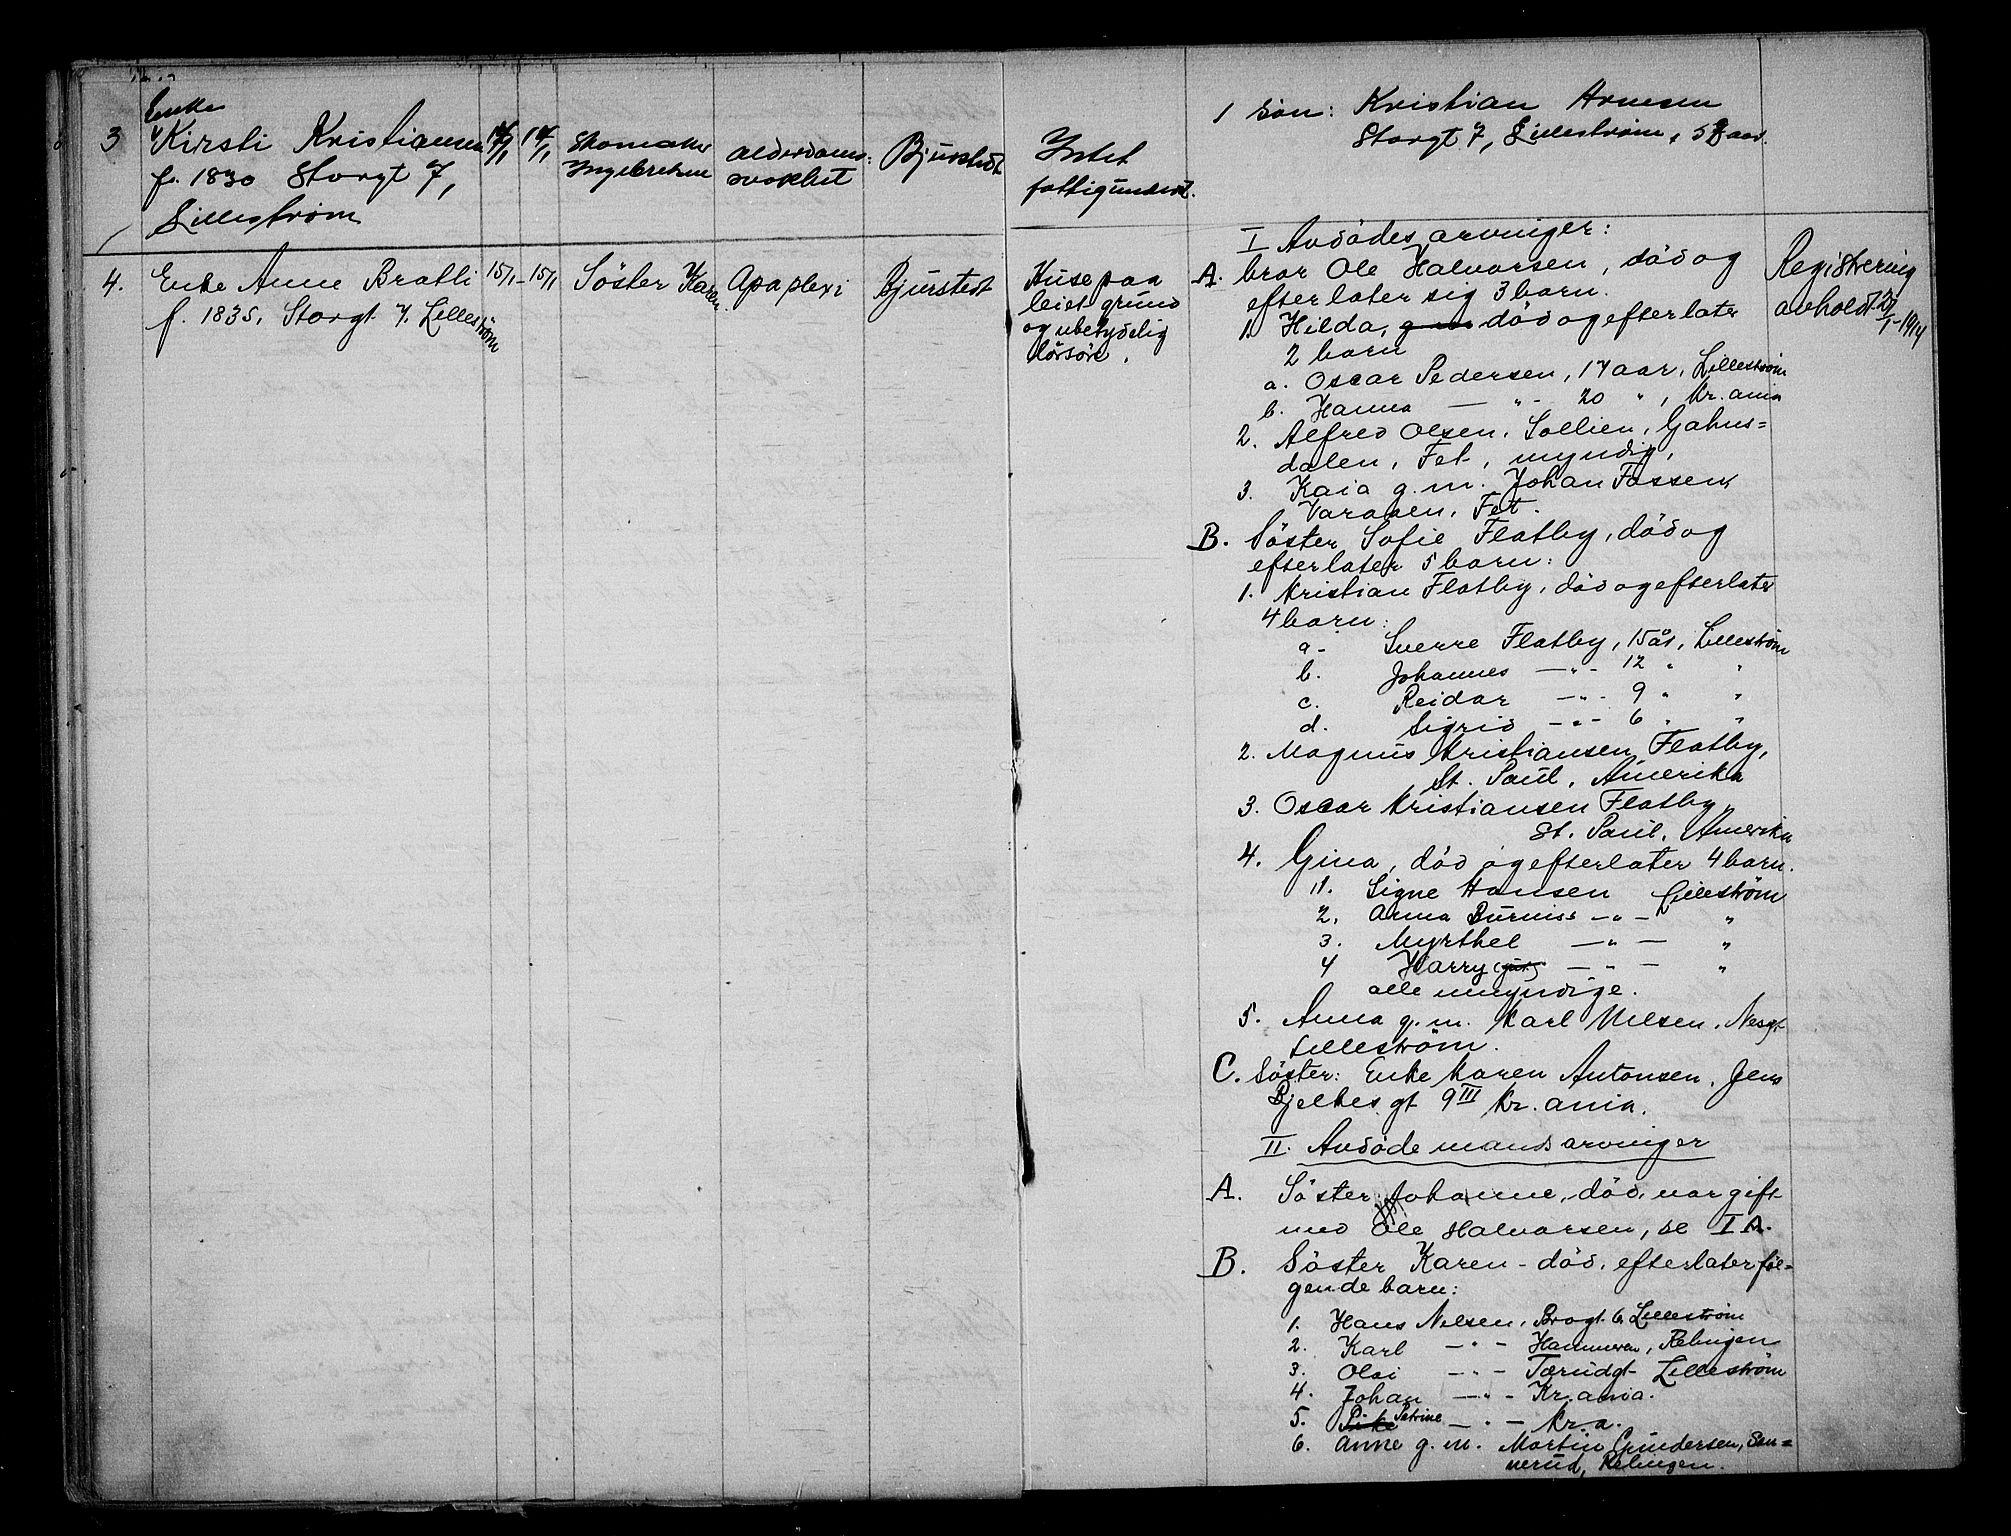 3
Enke
Kirsti Kristiansen
f. 1830 Storgt 7,
Lillestrøm
14/1
14/1
Skomaker
Ingebretsen
alderdoms-
svakhet
Bjurstedt
Intet
fattigunderst.
1 søn: Kristian Arnesen
Storgt 7, Lillestrøm,
4.
Enke Anne Bratli
f. 1835, Storgt 7. Lillestrøm
15/1 - 15/1
Söster Karen
Apoplexi
Bjurstedt
Huse paa
leiet grund
og ubetydelig
lösöre.
I Avdödes arvinger:
A. bror Ole Halvorsen, död og
efterlater sig 3 barn.
1. Hilda, död og efterlater
2 barn
a. Oscar Pedersen, 17 aar, Lilleström
b. Hanna — " - 20 ", Kr.ania
2. Alfred Olsen, Sollien, Gahus=
dalen, Fet, myndig,
3. Kaia g.m. Johan Fossen,
Varaaen, Fet.
B. Söster Sofie Flatby, död og
efterlater 5 barn:
1. Kristian Flatby, död og efterlater
4 barn:
a - Sverre Flatby, 15 år, Lilleström
b. Johannes — " - 12 " "
c. Reidar — " - 9 " "
d. Sigrid — " - 6 " "
2. Magnus Kristiansen Flatby,
St. Paul, Amerika
3. Oscar Kristiansen Flatby,
St. Paul, Amerika
4. Gina, död og efterlater 4 barn.
1. Signe Hansen Lilleström
2. Anna — " — "
3. Myrthel — " — "
4 Harry — " — "
alle umyndige.
5. Anna g.m. Karl Nilsen, Nesgt
Lilleström.
C. Söster: Enke Karen Antonsen, Jens
Bjelkes gt 9 III Kr.ania.
II. Avdöde mands arvinger
A. Söster Johanne, död, var gift
med Ole Halvorsen, se I A.
B. Söster Karen - död, efterlater föl=
gende barn:
1. Hans Nilsen, Brogt. 6, Lilleström
2. Karl — " - Hammeren, Relingen
3. Olai — " - Tærudgt Lilleström
4. Johan — " - Kr.ania.
5. Petrine — " — Kr.a.
6. Anne g.m. Martin Gundersen, Sen=
nerud, Relingen.
Registrering
avholdt 21/1 - 1914